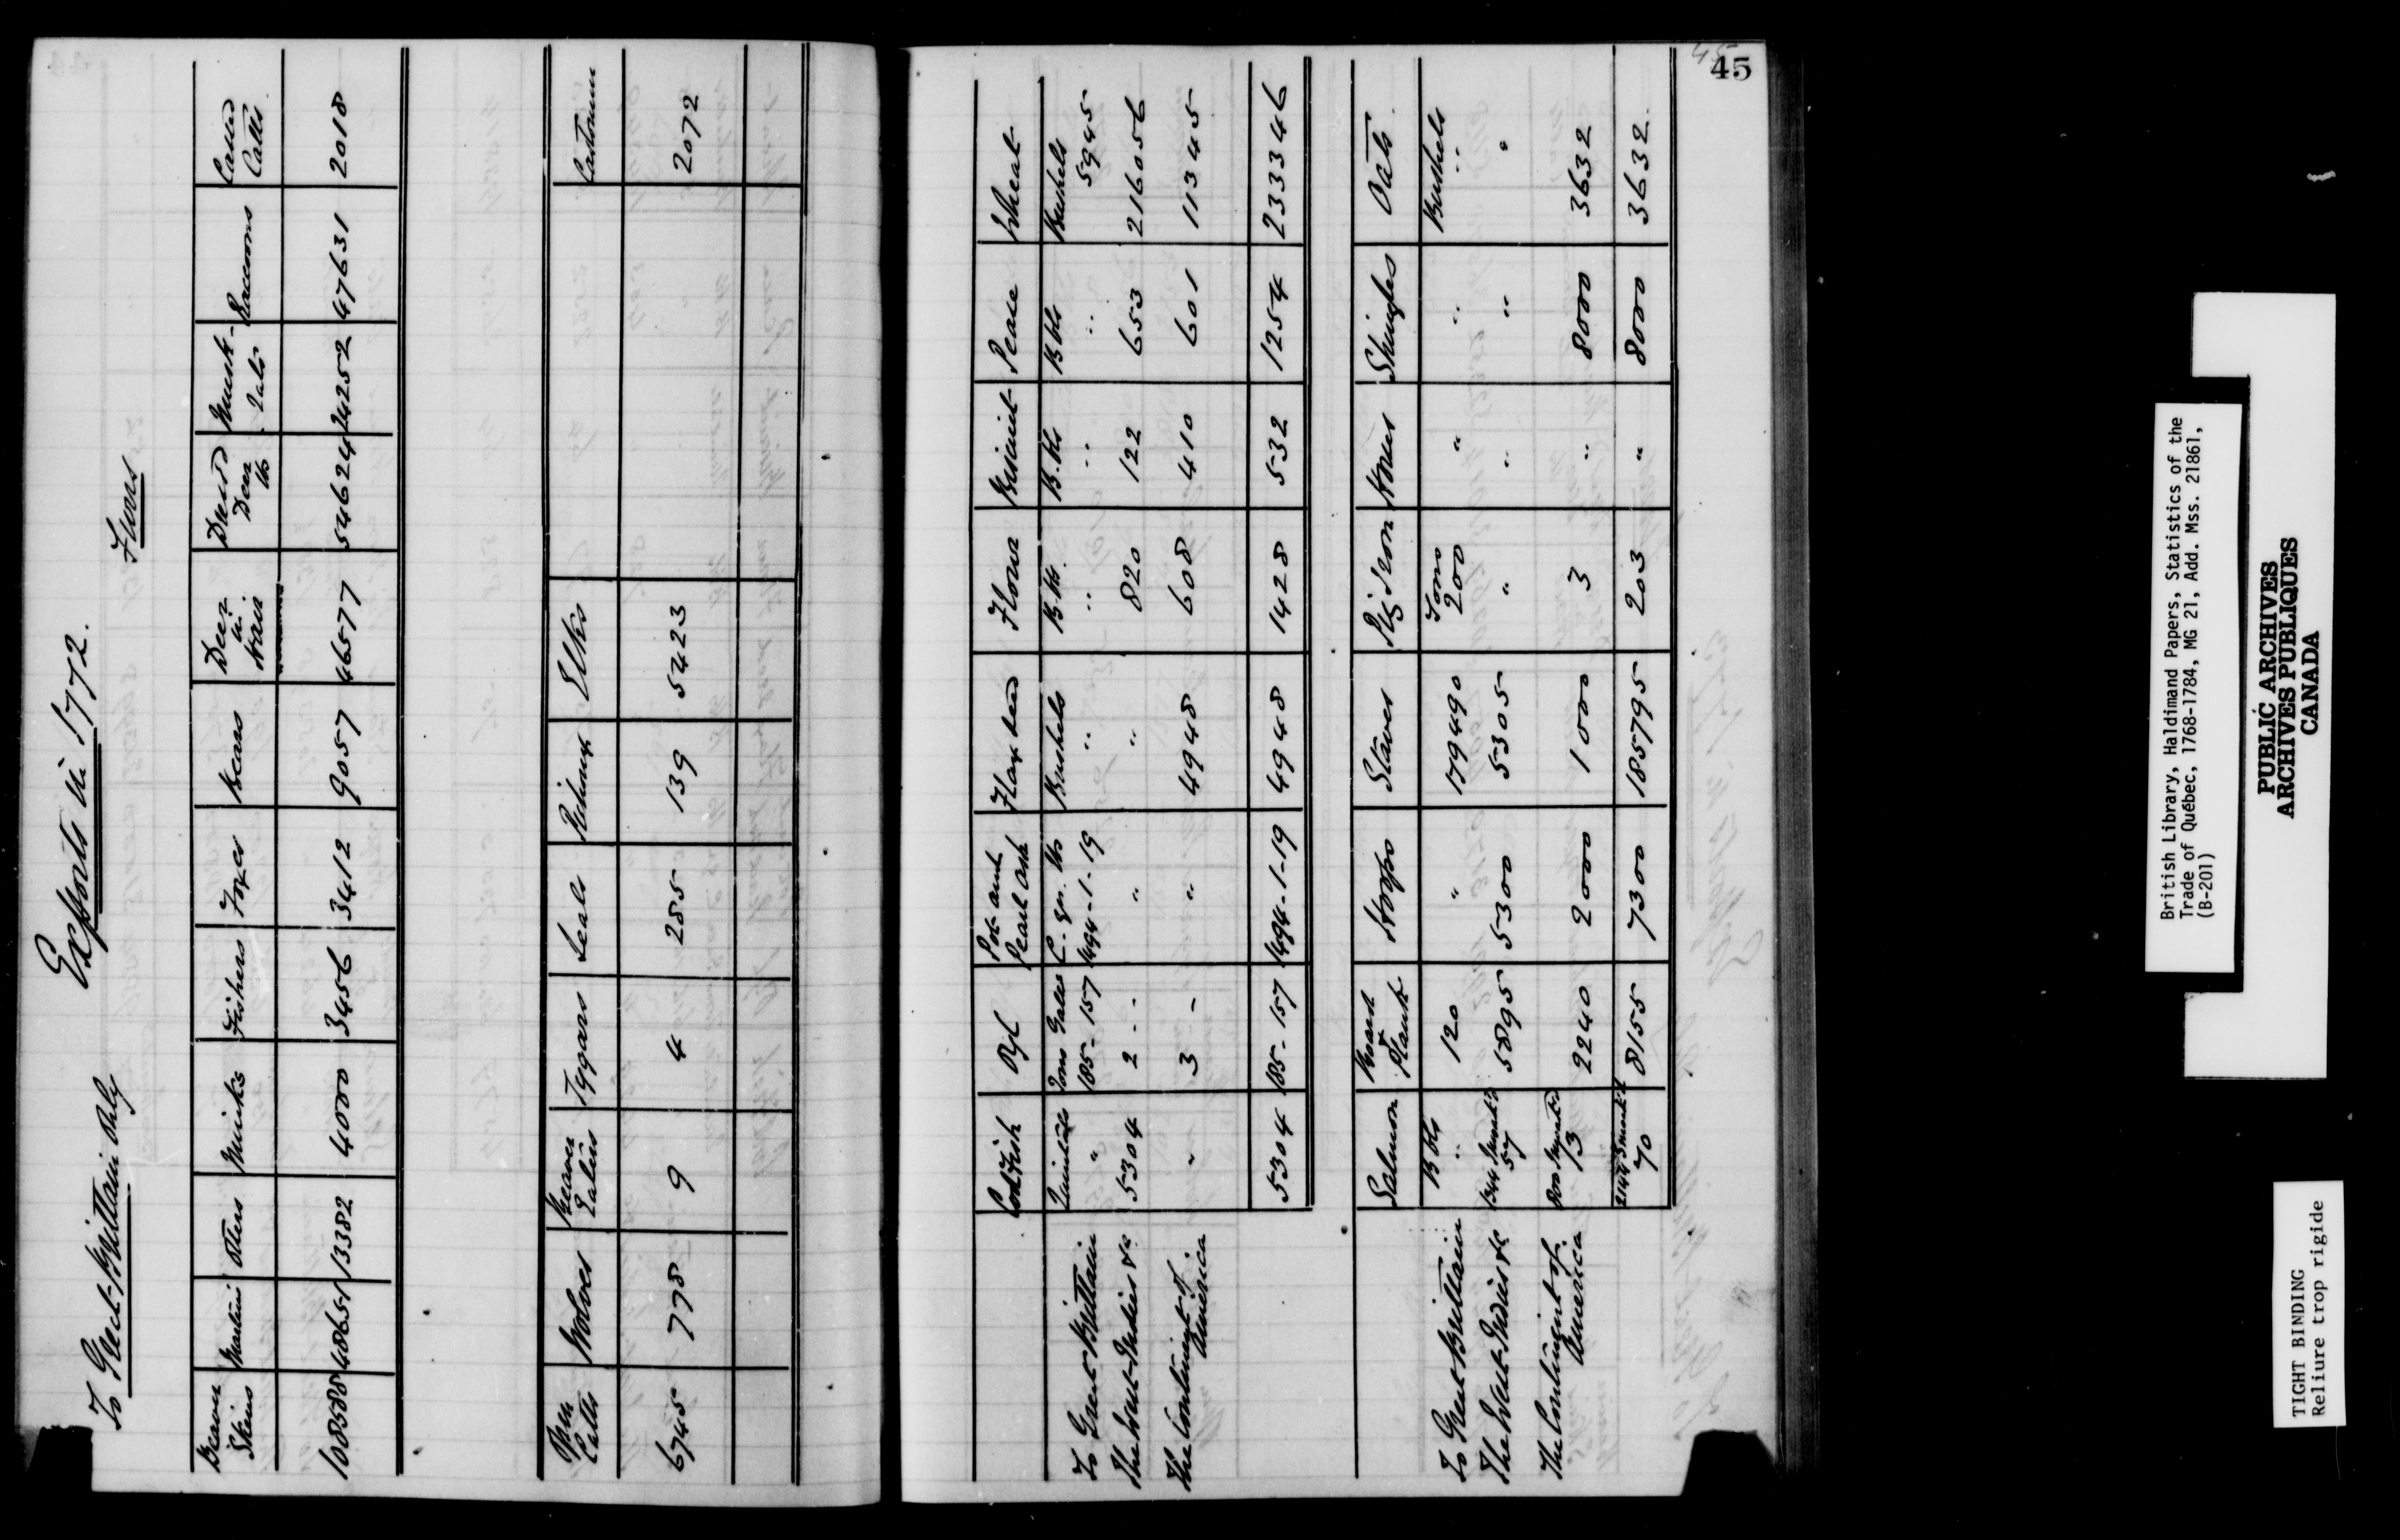 Exports in 1772.
To Great-Brittain Only Furs
Beaver Skins | Martins | Otters | Minks | Fishers | Foxes | Bears | Deer in hair | Dress'd Deer lbs | Musk-rats | Raccoons | Cased Catts
108588 | 48651 | 13382 | 4000 | 3456 | 3412 | 9057 | 46577 | 54624 | 24252 | 47631 | 2018
Open Catts | Wolves | Beaver Eating | Tygars | Seals | | Elks | Castorum
6745 | 778 | 9 | 4 | 285 | 139 | 5423 | 2072
45
45
Cod Fish | Oyl | Pot and Pearl Ash | Flax seed | Flour | Biscuit | Pease | Wheat
Quintals | Tons Galls | C. qr. lbs | Bushels | Bbls | B.bls | Bbls | Bushels
To Great Brittain | " | 185-157 | 494-1-19 | " | " | " | " | 5945
The West-Indies &c | 5304 | 2 - - | " | " | 820 | 122 | 653 | 216056
The Continent of America | " | 3 - | " | 4948 | 608 | 410 | 601 | 11345
5304 | 185-157 | 494-1-19 | 4948 | 1428 | 532 | 1254 | 233346
Salmon | Board & Plank | Hoops | Staves | Pig Iron | Horses | Shingles | Oats
Bbls | Tons | Bushels
To Great Brittain | " | 120 | " | 179490 | 200 | " | " | "
The West-Indies &c | 1344 Smoak'd 57 | 5895 | 5300 | 5305 | " | " | " | "
The Continent of America | 800 Smoak'd 13 | 2240 | 2000 | 1000 | 3 | " | 8000 | 3632
2144 Smoak'd 70 | 8155 | 7300 | 185795 | 203 | " | 8000 | 3632
British Library, Haldimand Papers, Statistics of the
Trade of Québec, 1768-1784, MG 21, Add. Mss. 21861,
(B-201)
PUBLIC ARCHIVES
ARCHIVES PUBLIQUES
CANADA
TIGHT BINDING
Reliure trop rigide